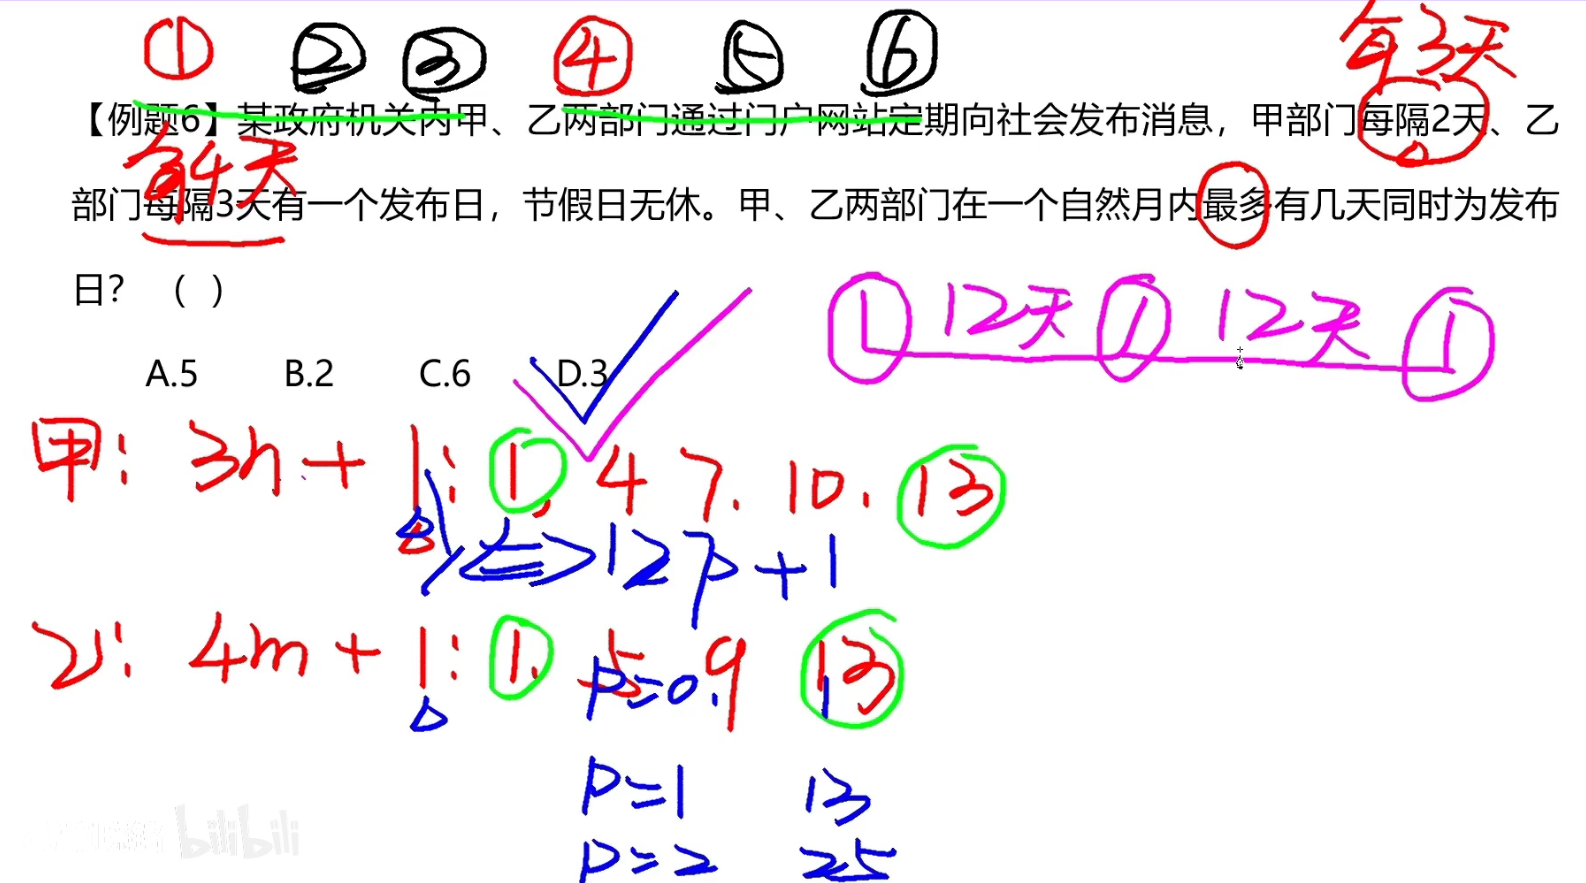 ① ② ③ ④ ⑤ ⑥ 每3天
【例题6】某政府机关内甲、乙两部门通过门户网站定期向社会发布消息，甲部门每隔2天、乙
每4天
部门每隔3天有一个发布日，节假日无休。甲、乙两部门在一个自然月内最多有几天同时为发布
日？（ ）
1 12天 1 12天 1
A.5 B.2 C.6 D.3
甲: 3n+1: 1, 4 7. 10. 13
<=>12p+1
乙: 4m+1: 1. 5 9 13
p=0. 1
p=1 13
p=2 25
bilibili